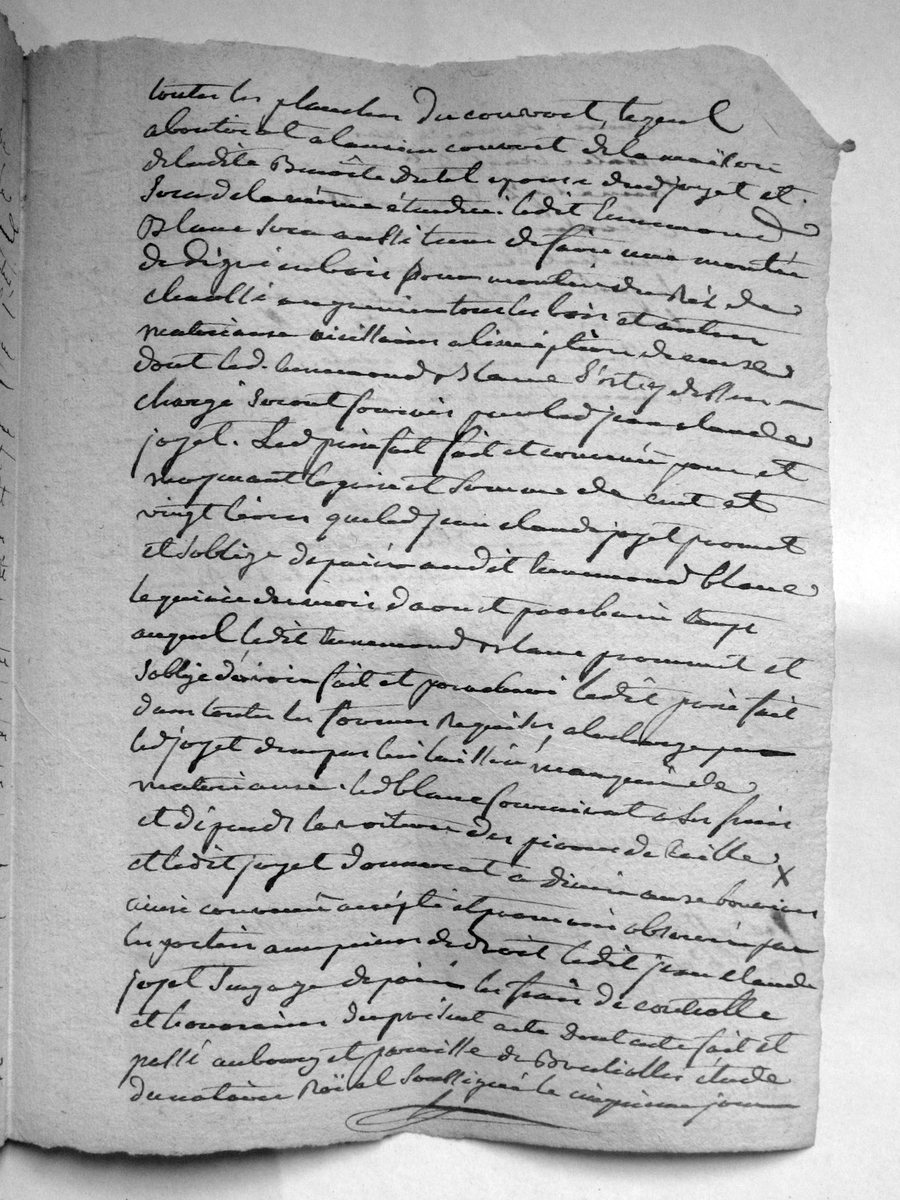 toutes les planches du couvert, lequel
aboutirat a lancien couvert de la maison
de ladite Benoite dutel epouse dud joyet et
Sera de la même étendue ; ledit Ennemond
Blanc Sera aussi tenu de faire une montée
de degré en bois pour monter du Réz de
chaussé au grenier tous les bois et autres
materiause necessaires a lexception de ceuse
dont led. Ennemond Blanc S'est cy dessus
chargé Seront fournis par led jean claude
joyet. Led prix fait fait et convenu pour et
moyenant le prix et Somme de cent et
vingt livres que led jean claude joyet promet
et Soblige de paier audit Ennemond blanc
le quinze du mois d'aoust prochain temps
auquel ledit Ennemond Blanc promet et
Soblige d'avoir fait et parachevé ledit prix fait
dans toutes les formes Requises, a la charge par
led joyet de ne pas lui laisser manquer de
materiause. led blanc fournirat a Ses frais
et dépends les voitures des pierres de taille X
et ledit joyet donnerat a diner ause bouviers
ainsi convenu accepté et promis observer par
les parties aux peines de droit ledit jean claude
joyet Sengage de paier les frais de controlle
et honoraires du présent acte dont acte fait et
passé au bourg et paroisse de étude
du notaire Roïal Soussigné le cinquieme jour